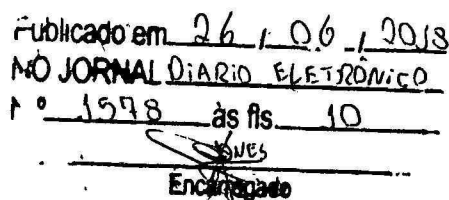 Publicado em 26 / 06 / 2018
NO JORNAL DiARiO ELETRÔNiCO
Nº 1578 às fls. 10
Encarregado